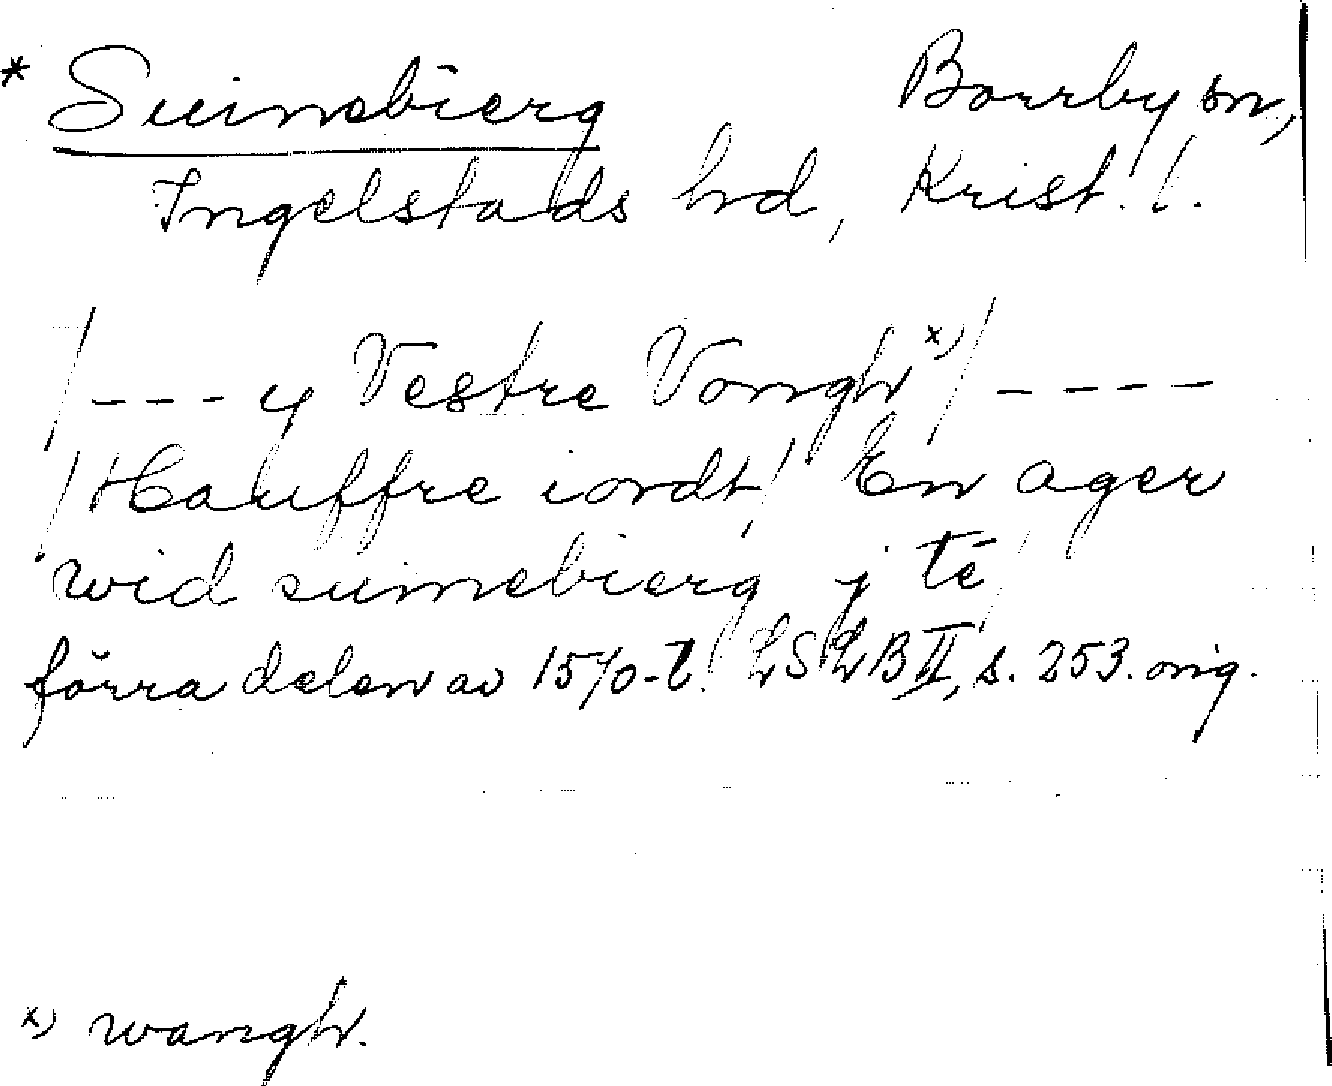 * Suinsbierg Borrby sn,
Ingelstads hd, Krist. l.
/--- y Vestre Vongh x)/ ----
/Hauffre iordt/ En ager
wid suinsbierg j té
förra delen av 1570-t. LSLB II, s. 253. orig.
x) wangh.